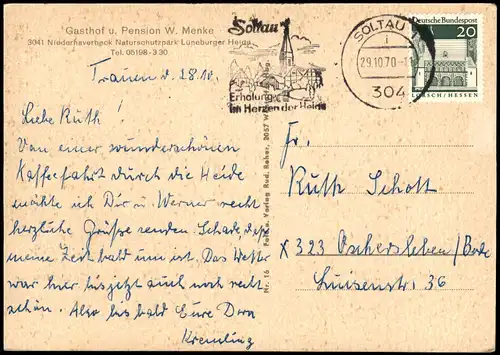 Gasthof u. Pension W. Menke
3041 Niederhaverbeck Naturschutzpark Lüneburger Heide
Tel. 05198-330
Soltau
Erholung
im Herzen der Heide
SOLTAU 1
i
29.10.70
304
Deutsche Bundespost
20
LORSCH/HESSEN
d. 28.10.
Liebe Ruth!
Von einer wunderschönen
Kaffeefahrt durch die Heide
möchte ich Dir u. Werner recht
herzliche Grüße senden. Schade, daß
meine Zeit bald um ist. Das Wetter
war hier bis jetzt auch noch recht
schön. Also bis bald Eure Dora
Kremling
Nr. 16 Foto u. Verlag Rud. Reher, 2057
Fr.
Ruth Schott
x 323 Oschersleben/Bode
Luisenstr. 36